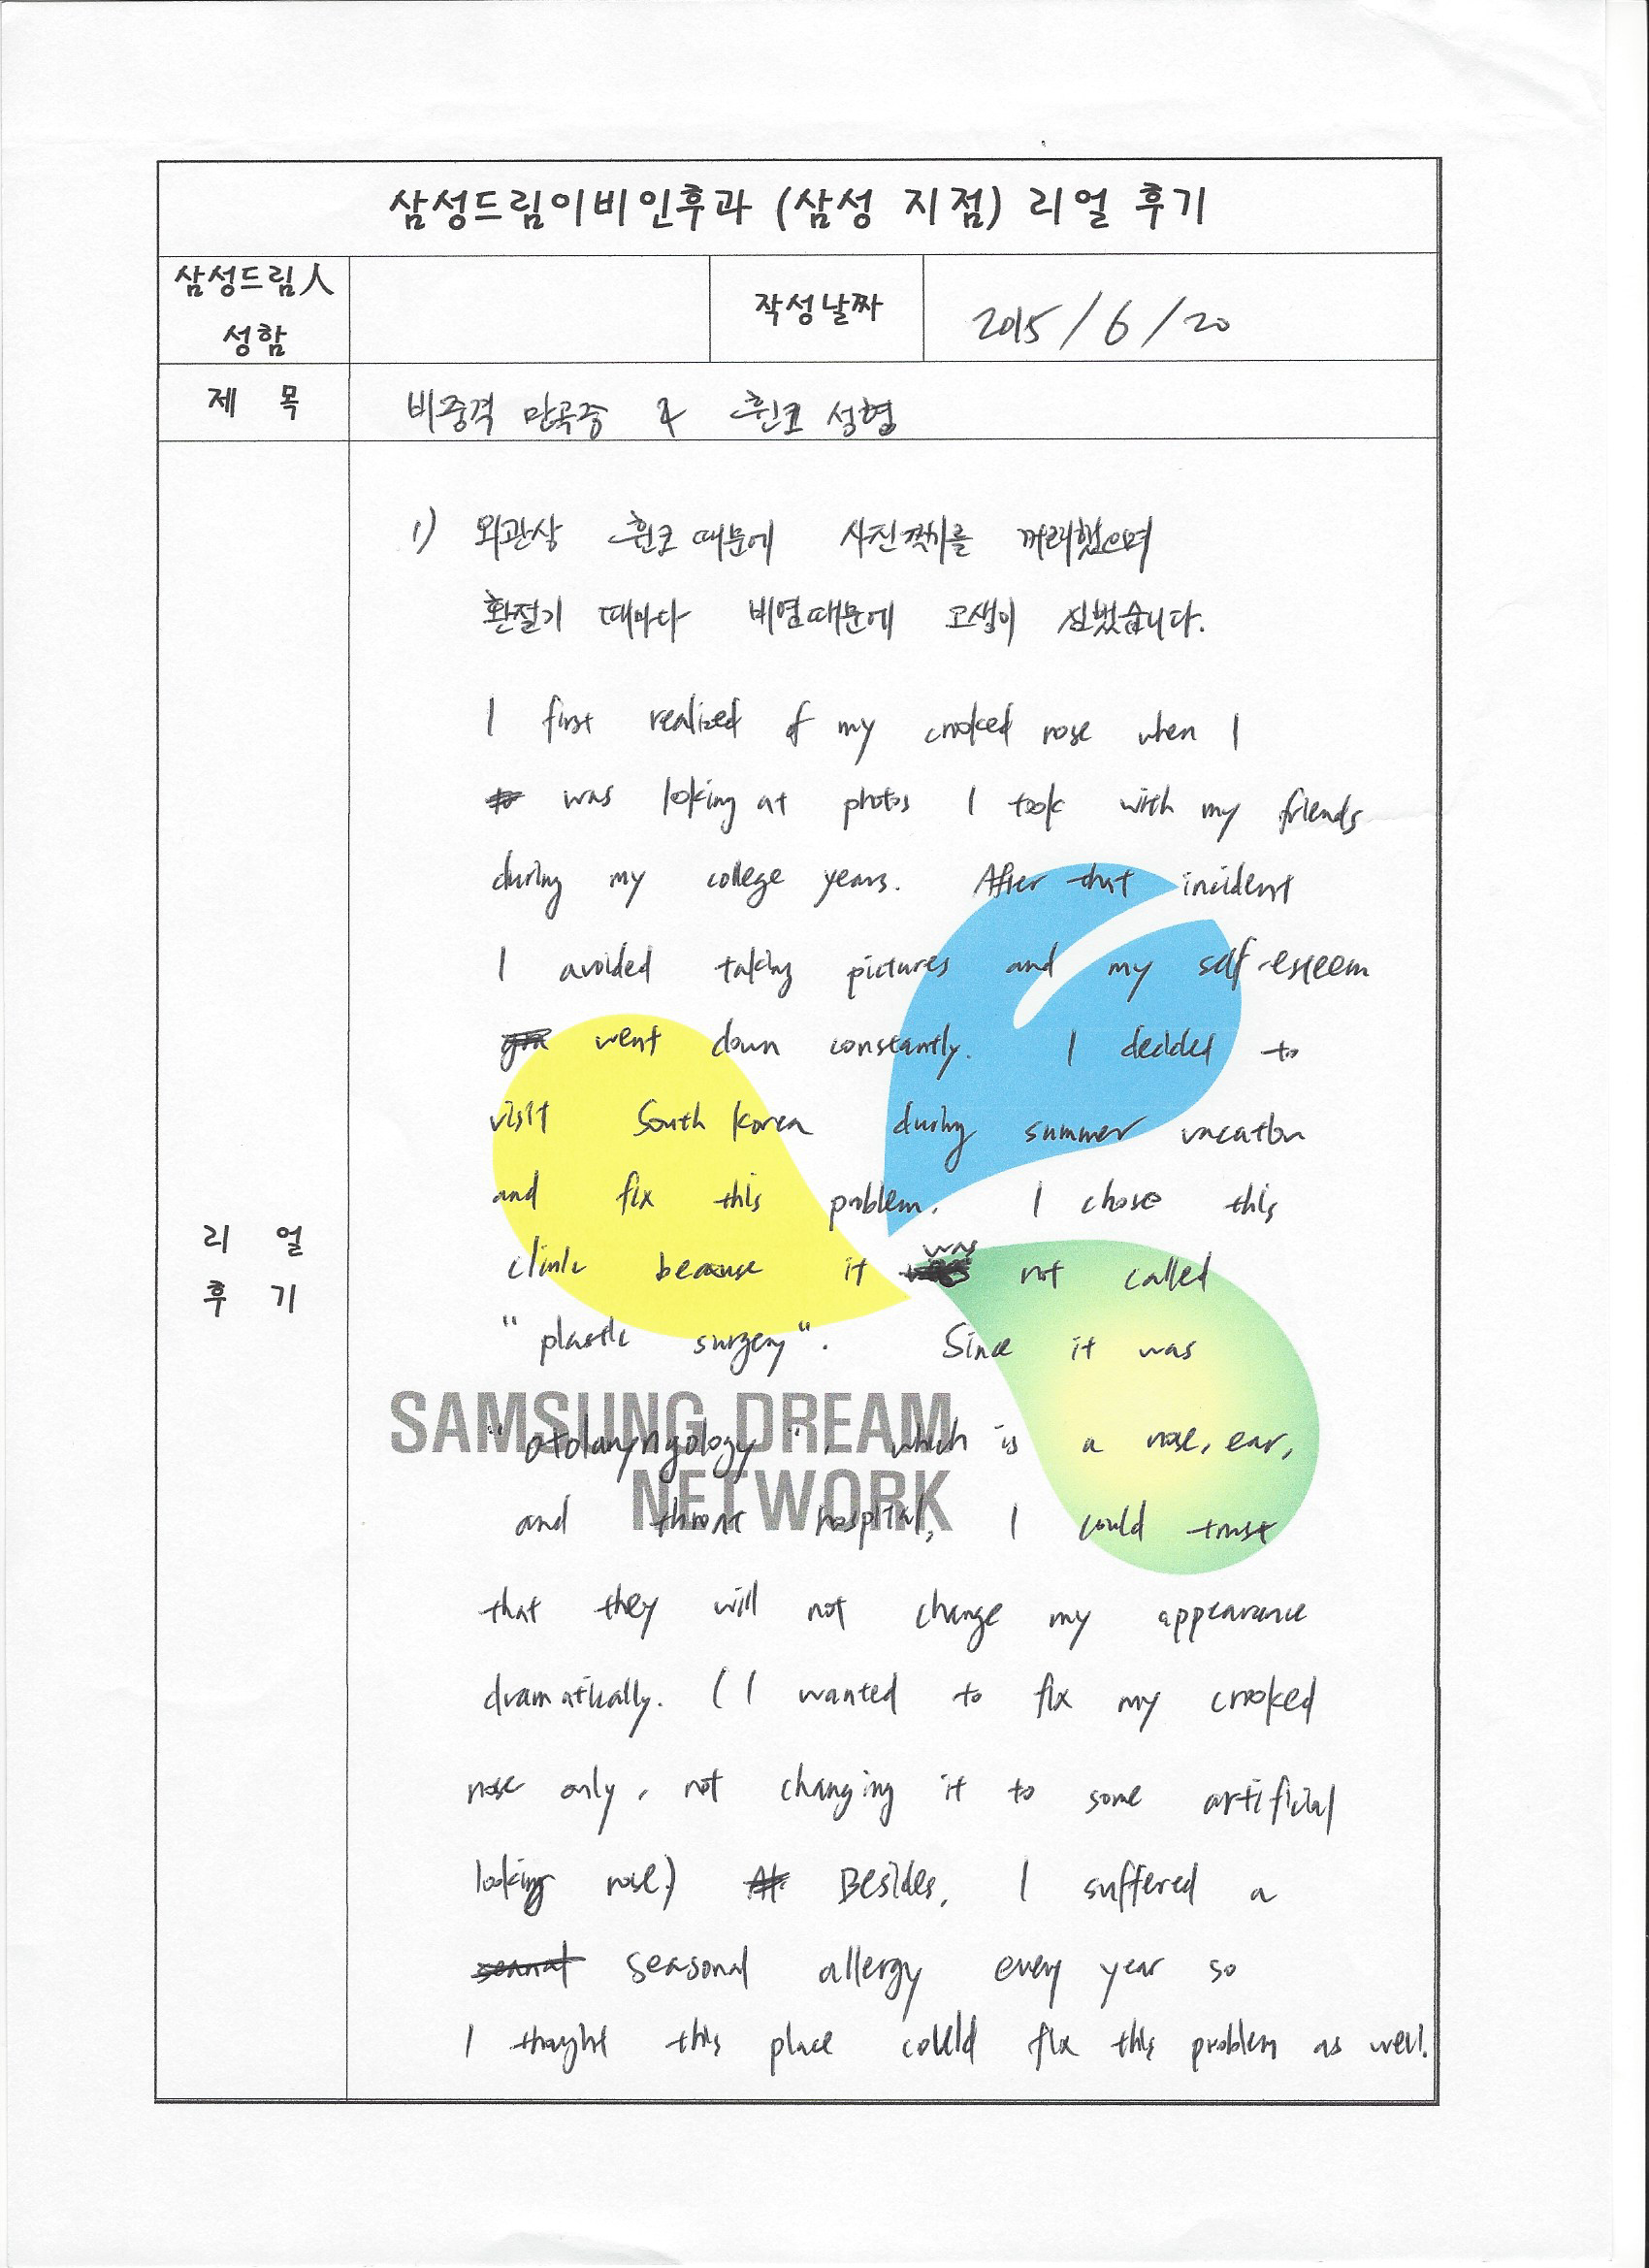 삼성드림이비인후과 (삼성 지점) 리얼 후기
삼성드림人
성함
작성날짜
2015/6/20
제 목
비중격 만곡증 & 휜코 성형
1) 외관상 휜코 때문에 사진찍기를 꺼려했으며
환절기 때마다 비염때문에 고생이 심했습니다.
I first realized of my crooked nose when I
was looking at photos I took with my friends
during my college years. After that incident
I avoided taking pictures and my self-esteem
went down constantly. I decided to
visit South Korea during summer vacation
and fix this problem. I chose this
리 얼
후 기
clinic because it was not called
"plastic surgery". Since it was
SAMSUNG DREAM
NETWORK
"otolaryngology", which is a nose, ear,
and throat hospital, I could trust
that they will not change my appearance
dramatically. (I wanted to fix my crooked
nose only, not changing it to some artificial
looking nose.) Besides, I suffered a
seasonal allergy every year so
I thought this place could fix this problem as well.